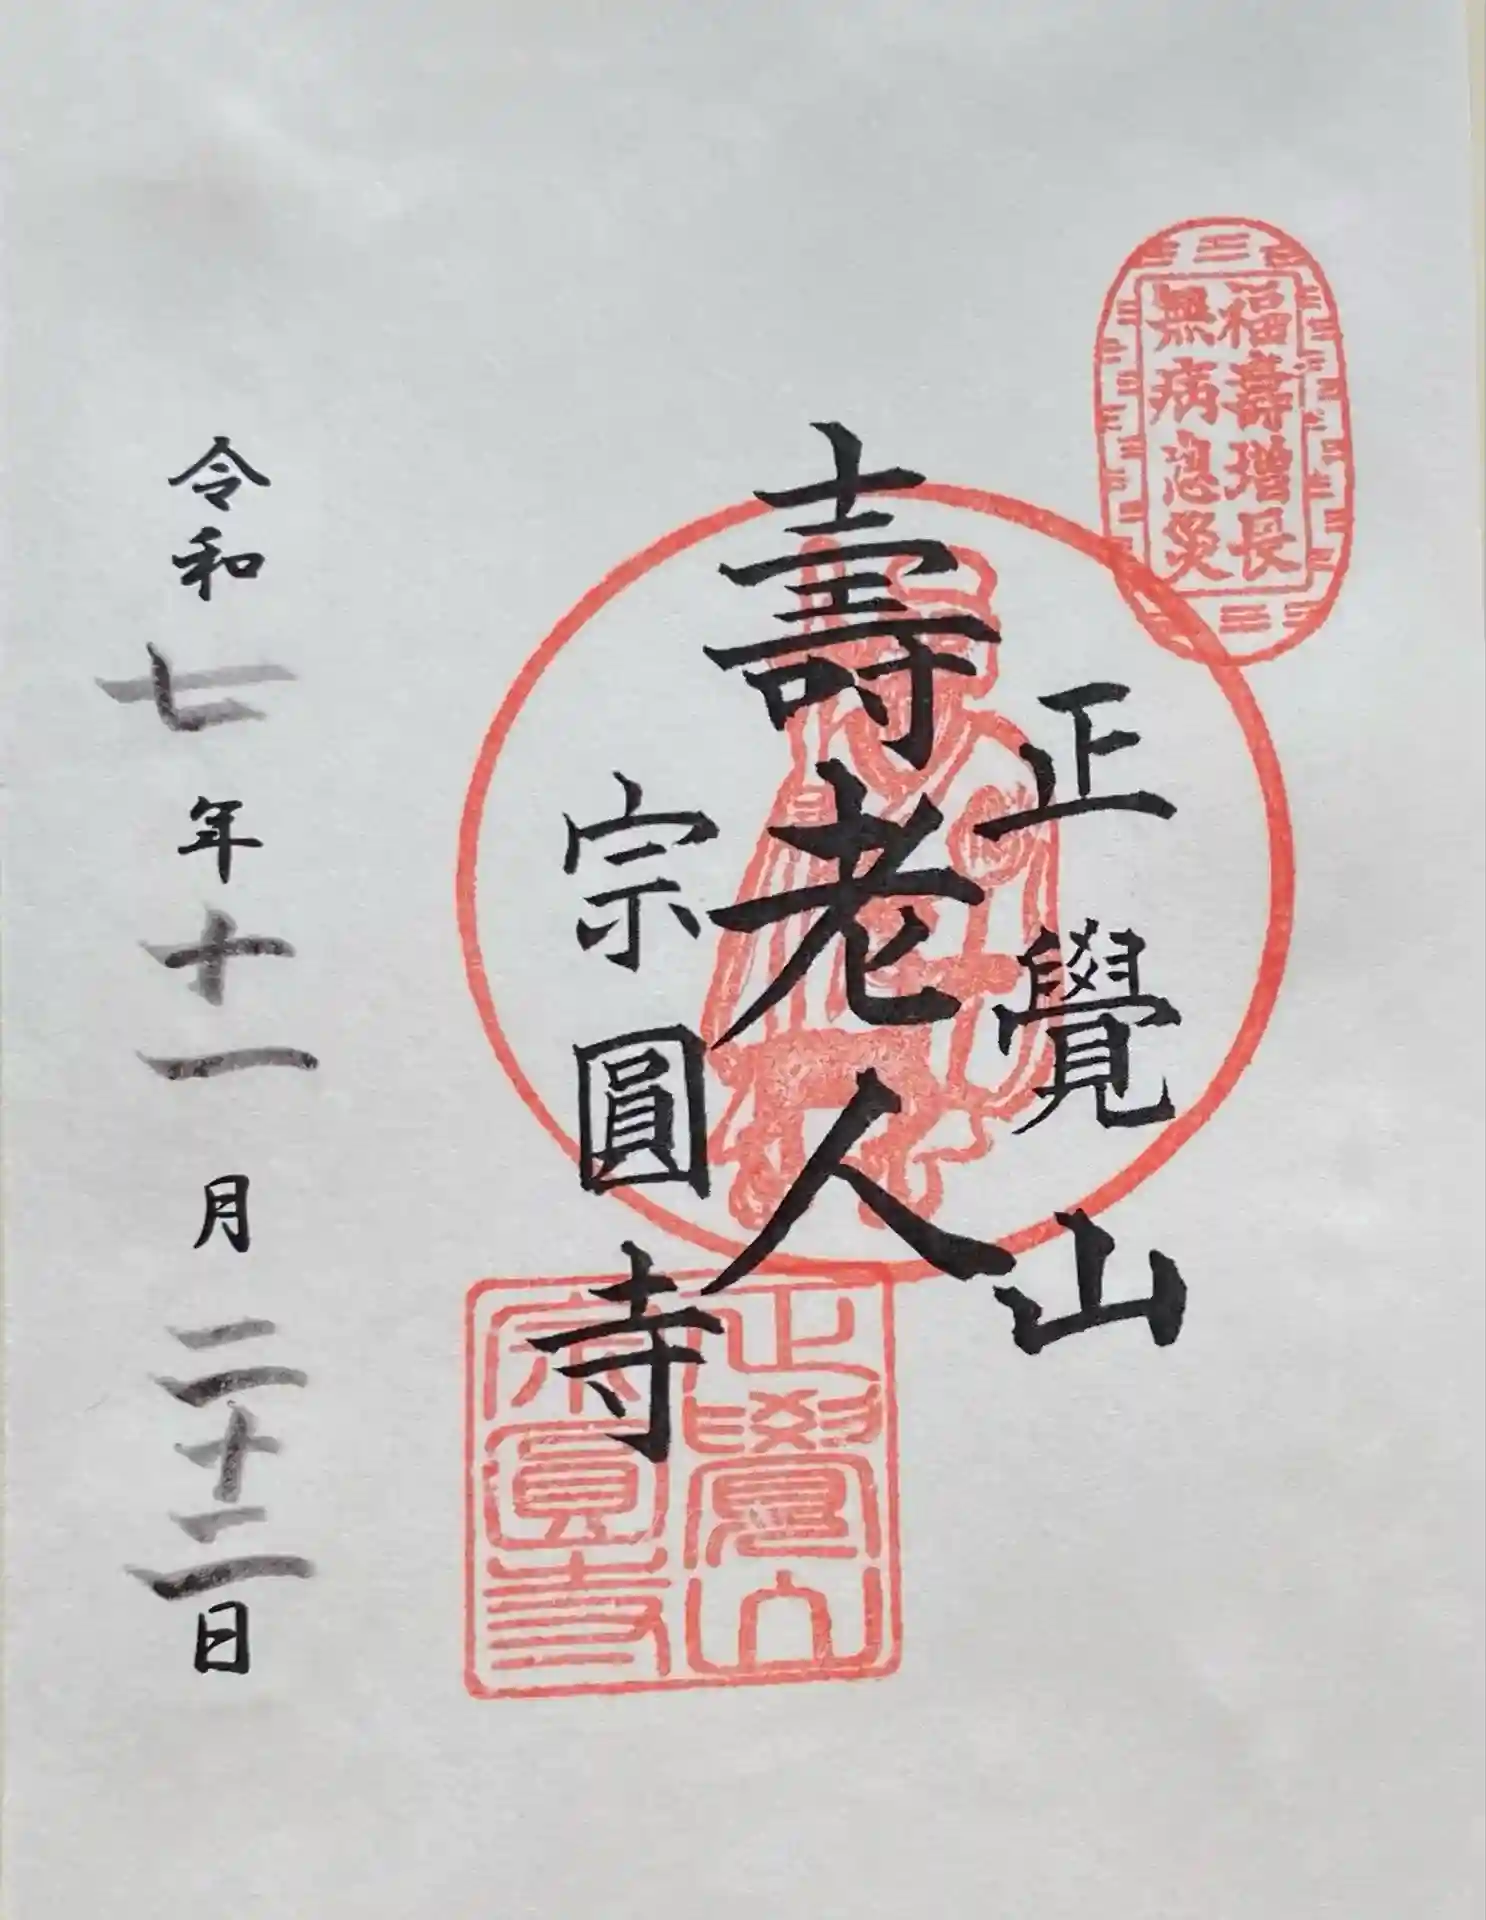 福壽增長
無病息災
正覺山
壽老人
宗圓寺
正覺山
宗圓寺
令和七年十一月二十二日